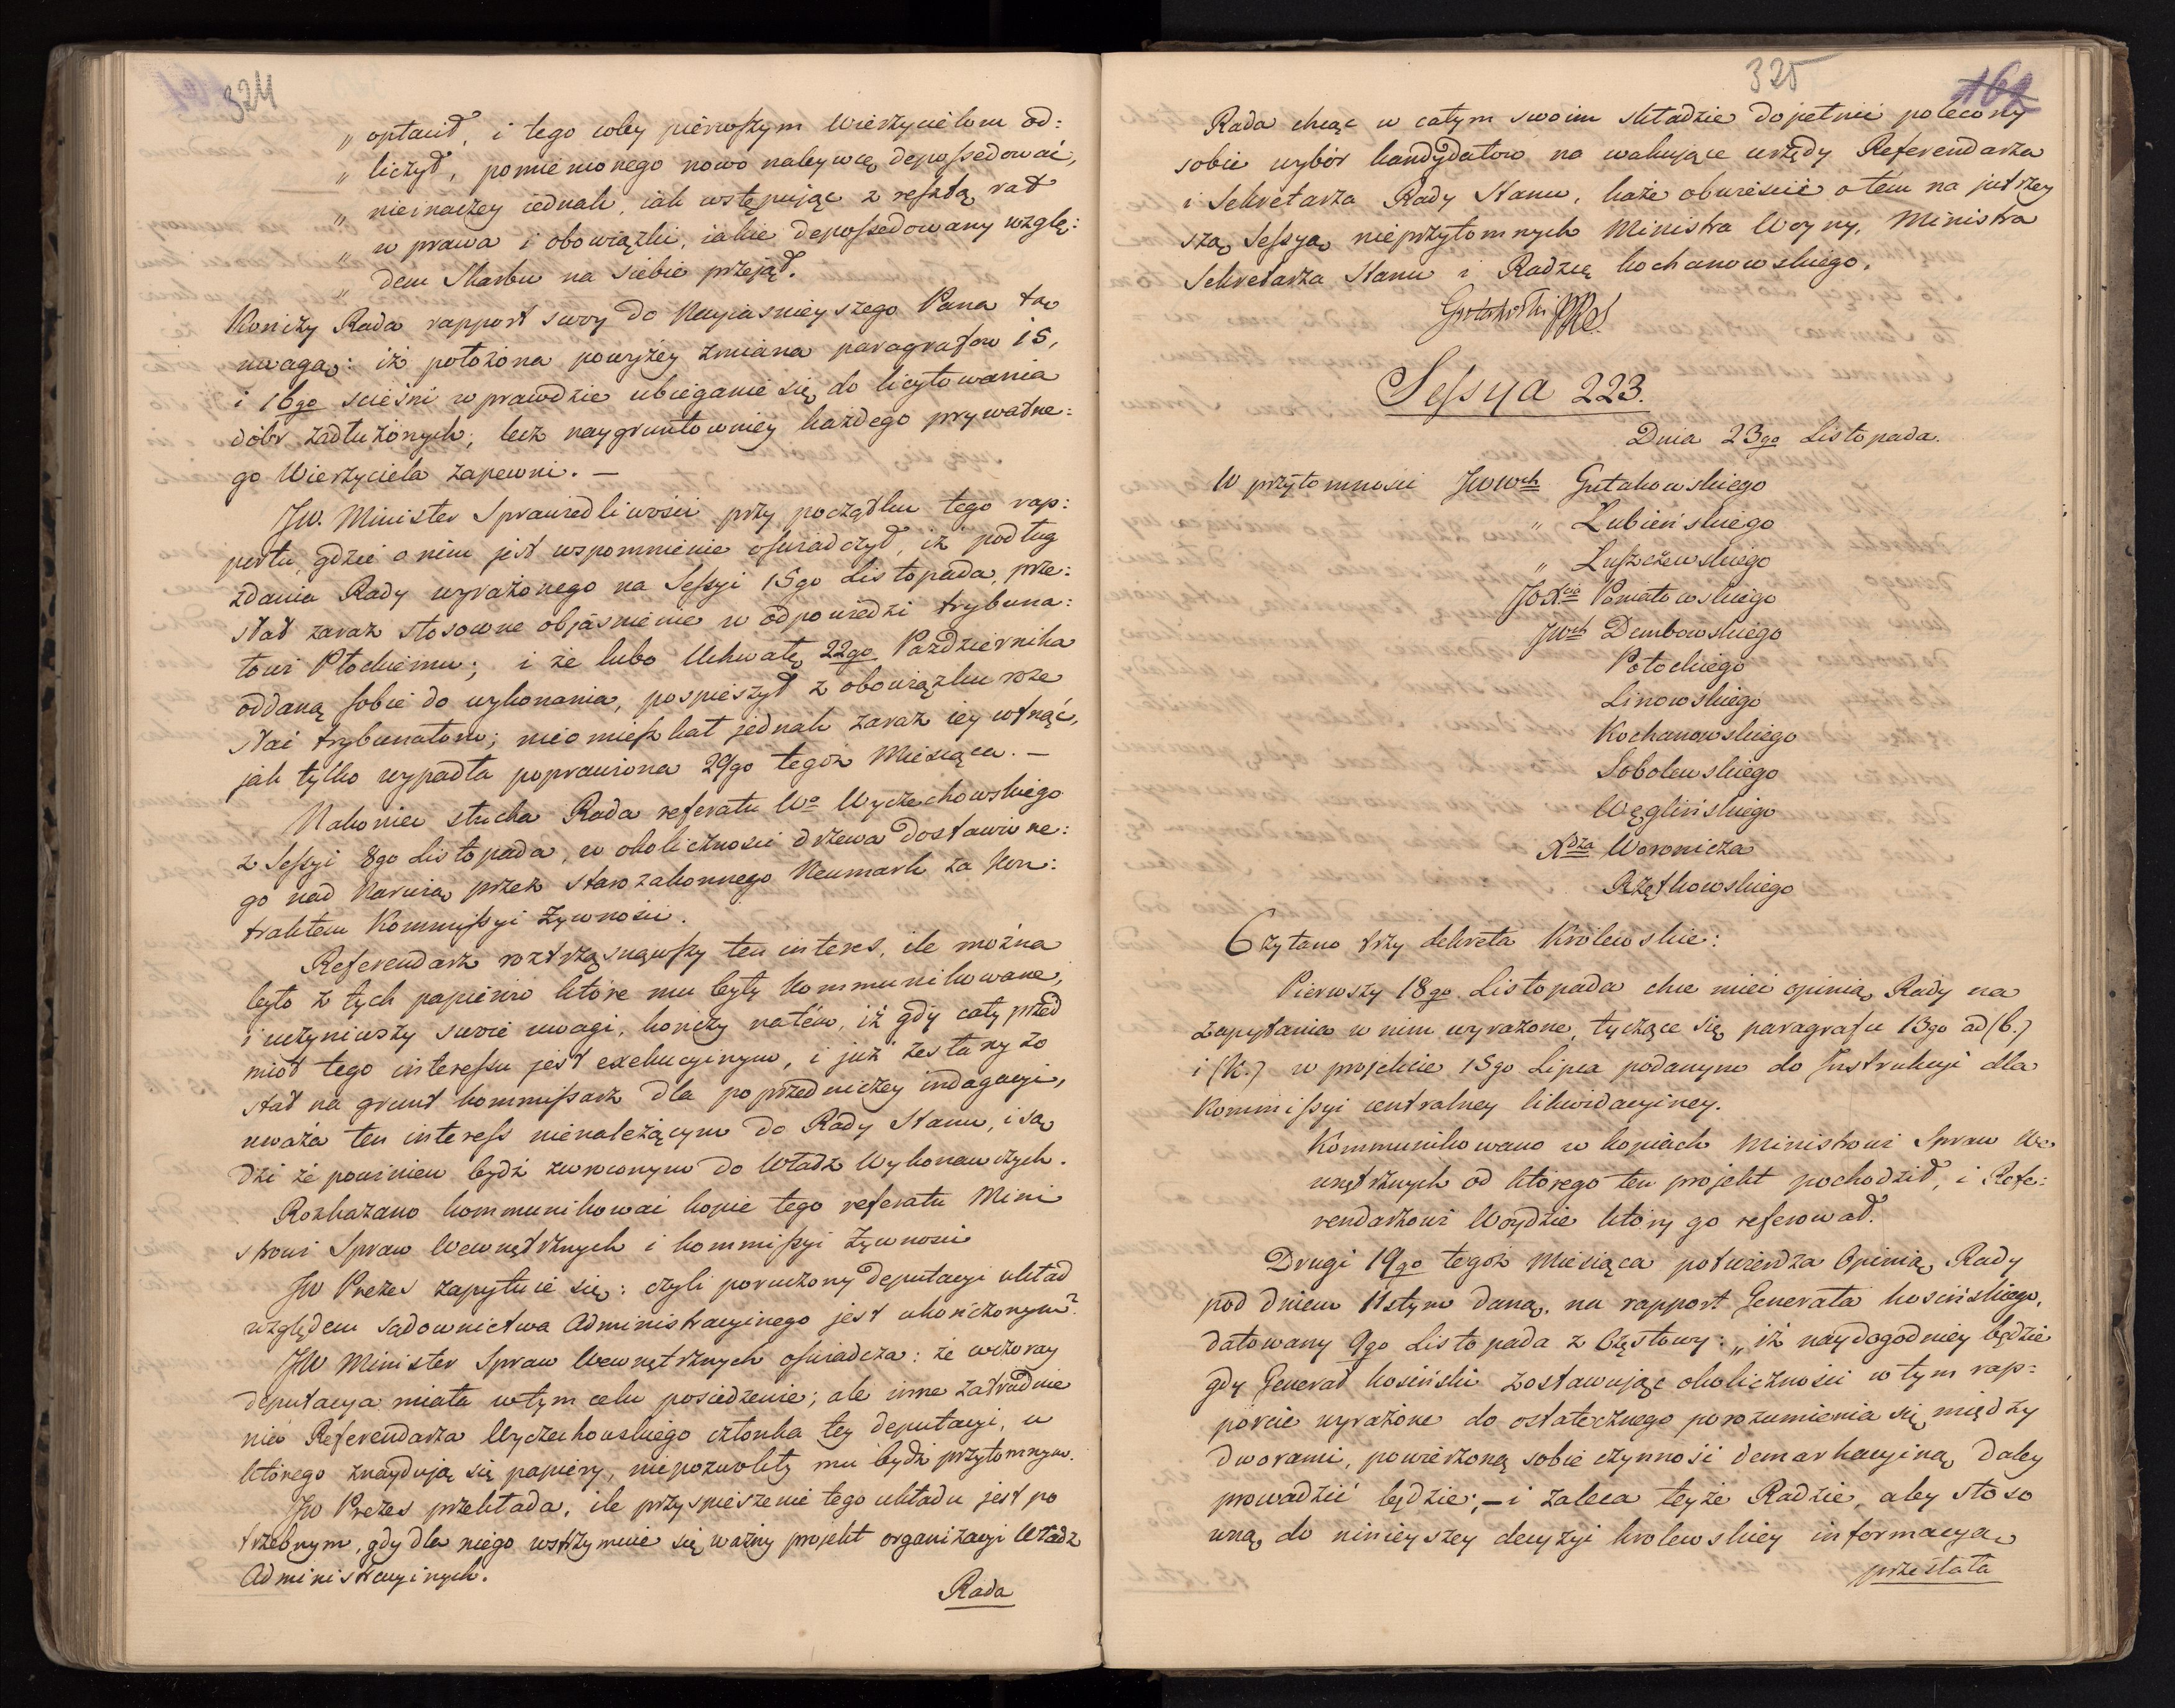 324
„ opłacił, i tego coby pierwszym Wierzycielom od:
„ liczył, pomienionego nowo nabywcę depossedować,
„ nieinaczey iednak, iak wstępując z resztą rat
„ w prawa i obowiązki, iakie depossedowany wzglę:
„ dem Skarbu na siebie przejął.
Kończy Rada rapport swoy do Nayiasnieyszego Pana tą
uwagą: iż położona powyżey zmiana paragrafów 15,
i 16go scieśni wprawdzie ubieganie się do licytowania
dóbr zadłużonych, lecz naygruntowniey każdego prywatne:
go Wierzyciela zapewni. —
JW. Minister Sprawiedliwości przy początku tego rap:
portu, gdzie o nim jest wspomnienie oświadczył, iż podług
zdania Rady wyrażonego na Sessyi 15go Listopada, prze:
słał zaraz stosowne objaśnienie w odpowiedzi trybuna:
łowi Płockiemu; i że lubo Uchwałę 22go Października
oddaną sobie do wykonania, pospieszył z obowiązku roze
słać trybunałom; nieomieszkał jednak zaraz iey cofnąć,
jak tylko wypadła poprawiona 29go tegoż Miesiąca. —
Nakoniec słucha Rada referatu Wo Wyczechowskiego
z Sessyi 8go Listopada, w okoliczności drzewa dostawione:
go nad Narwią przez starozakonnego Neumark za Kon:
traktem Kommissyi Żywności.
Referendarz roztrząsnąwszy ten interes, ile można
było z tych papierów które mu były kommunikowane,
i uczyniwszy swoie uwagi, kończy natém, iż gdy cały przed
miot tego interessu jest exekucyinym, i już zesłany zo
stał na grunt kommissarz dla poprzedniczey indagacyi,
uważa ten interess nienależącym do Rady Stanu, i są
dzi że powinien bydź zwróconym do Władz Wykonawczych.
Rozkazano kommunikować kopie tego referatu Mini
strowi Spraw Wewnętrznych i kommissyi Żywności
JW Prezes zapytuie się: czyli poruczony Deputacyi układ
względem sadownictwa Administracyinego jest ukończonym?
JW Minister Spraw Wewnętrznych oświadcza: że wczoray
deputacya miała wtym celu posiedzenie; ale inne zatrudnie
nie Referendarza Wyczechowskiego członka tey deputacyi, u
którego znaydują się papiery, niepozwoliły mu bydź przytomnym.
JW Prezes przekłada, ile przyspieszenie tego układu jest po
trzebnym, gdy dla niego wstrzymuie się ważny projekt organizacyi Władz
Administracyinych.
Rada
325
162
Rada chcąc w całym swoim składzie dopełnić polecony
sobie wybór kandydatów na wakujące urzędy Referendarza
i Sekretarza Rady Stanu, każe obwieścić o tém na jutrzey
szą Sessyą nieprzytomnych Ministra Woyny, Ministra
Sekretarza Stanu i Radzcę Kochanowskiego.
Gutakowski PRS
Sessya 223.
Dnia 23go Listopada.
W przytomności JWWch Gutakowskiego
„ Łubieńskiego
„ Luszczewskiego
JOXcia Poniatowskiego
JWch Dembowskiego
Potockiego
Linowskiego
Kochanowskiego
Sobolewskiego
Węglińskiego
Xdza Woronicza
Rzętkowskiego
Czytano trzy dekreta Królewskie:
Pierwszy 18go Listopada chce mieć opinią Rady na
zapytania w nim wyrażone, tyczące się paragrafu 13go ad (b.)
i (K.) w projekcie 15go Lipca podanym do Instrukcyi dla
Kommissyi centralney likwidacyiney.
Kommunikowano w kopiach Ministrowi Spraw We
wnętrznych od którego ten projekt pochodził, i Refe:
rendarzowi Woydzie który go referował.
Drugi 19go tegoż Miesiąca potwierdza Opinią Rady
pod dniem 11stym daną, na rapport Generała Kosińskiego,
datowany 9go Listopada z Częstowy: „iż naydogodniey będzie
gdy Generał Kosiński zostawując okoliczności w tym rap:
porcie wyrażone do ostatecznego porozumienia się między
dworami, powierzoną sobie czynność demarkacyiną daley
prowadzić będzie; — i zaleca teyże Radzie, aby stoso
wną do ninieyszey decyzyi królewskiey informacyą
przesłała